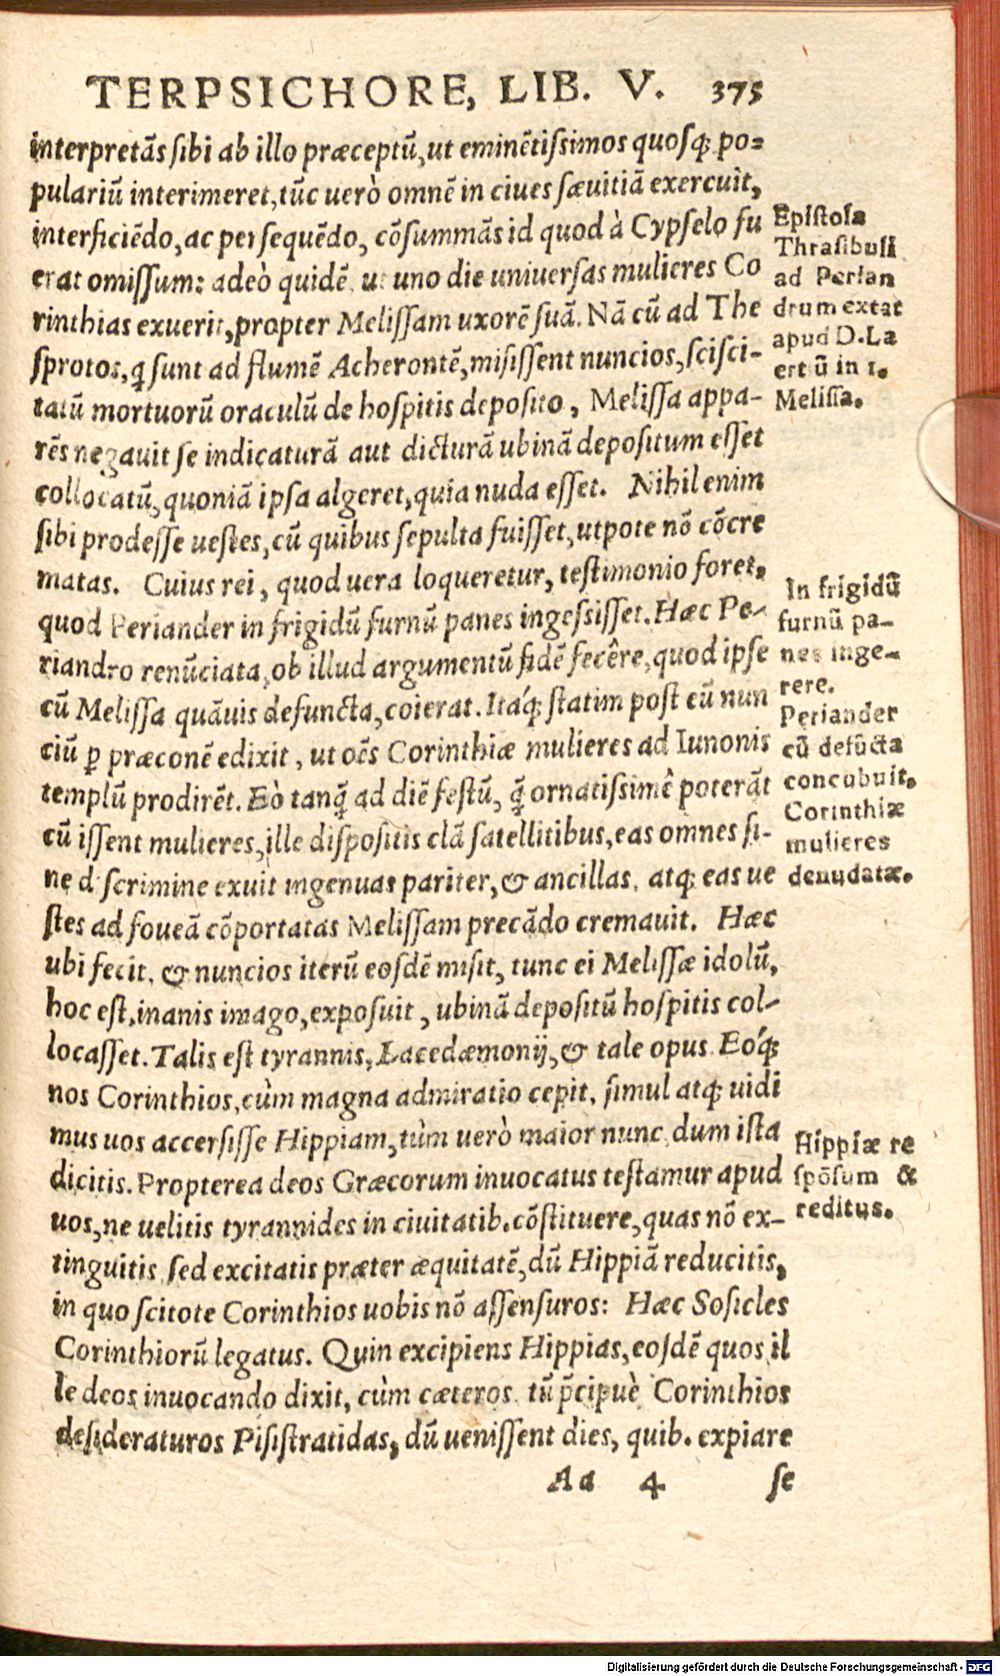 TERPSICHORE, LIB. V. 375
interpretãs sibi ab illo præceptũ, ut eminẽtissimos quosq; po=
pulariũ interimeret, tũc uerò omnẽ in ciues sæuitiã exercuit,
interficiẽdo, ac persequẽdo, cõsummãs id quod à Cypselo fu
erat omissum: adeò quidẽ, ut uno die uniuersas mulieres Co
rinthias exuerit, propter Melissam uxorẽ suã. Nã cũ ad The
sprotos, q̃ sunt ad flumẽ Acherontẽ, misissent nuncios, scisci-
tatũ mortuorũ oraculũ de hospitis deposito, Melissa appa-
rẽs negauit se indicaturã aut dicturã ubinã depositum esset
collocatũ, quoniã ipsa algeret, quia nuda esset. Nihil enim
sibi prodesse uestes, cũ quibus sepulta fuisset, utpote nõ cõcre
matas. Cuius rei, quod uera loqueretur, testimonio foret,
quod Periander in frigidũ furnũ panes ingessisset. Hæc Pe-
riandro renũciata, ob illud argumentũ fidẽ fecêre, quod ipse
cũ Melissa quãuis defuncta, coierat. Itáq; statim post eũ nun
ciũ ꝑ præconẽ edixit, ut oẽs Corinthiæ mulieres ad Iunonis
templũ prodirẽt. Eò tanq̃ ad diẽ festũ, q̃ ornatissimê poterãt
cũ issent mulieres, ille dispositis clã satellitibus, eas omnes si-
ne discrimine exuit ingenuas pariter, & ancillas, atq; eas ue
stes ad foueã cõportatas Melissam precãdo cremauit. Hæc
ubi fecit, & nuncios iterũ eosdẽ misit, tunc ei Melissæ idolũ,
hoc est, inanis imago, exposuit, ubinã depositũ hospitis col-
locasset. Talis est tyrannis, Lacedæmonij, & tale opus. Eóq;
nos Corinthios, cùm magna admiratio cepit, simul atq; uidi
mus uos accersisse Hippiam, tùm uerò maior nunc, dum ista
dicitis. Propterea deos Græcorum inuocatus testamur apud
uos, ne uelitis tyrannides in ciuitatib. cõstituere, quas nõ ex-
tinguitis sed excitatis præter æquitatẽ, dũ Hippiã reducitis,
in quo scitote Corinthios uobis nõ assensuros: Hæc Sosicles
Corinthiorũ legatus. Quin excipiens Hippias, eosdẽ quos il
le deos inuocando dixit, cùm cæteros, tũ p̃cipuè Corinthios
desideraturos Pisistratidas, dũ uenissent dies, quib. expiare
Aa 4 se
Epistola
Thrasibuli
ad Perian
drum extat
apud D. La
ertiũ in 1.
Melissa.
In frigidũ
furnũ pa-
nes inge-
rere.
Periander
cũ defũcta
concubuit.
Corinthiæ
mulieres
denudatæ.
Hippiæ re
spõsum &
reditus.
Digitalisierung gefördert durch die Deutsche Forschungsgemeinschaft - DFG